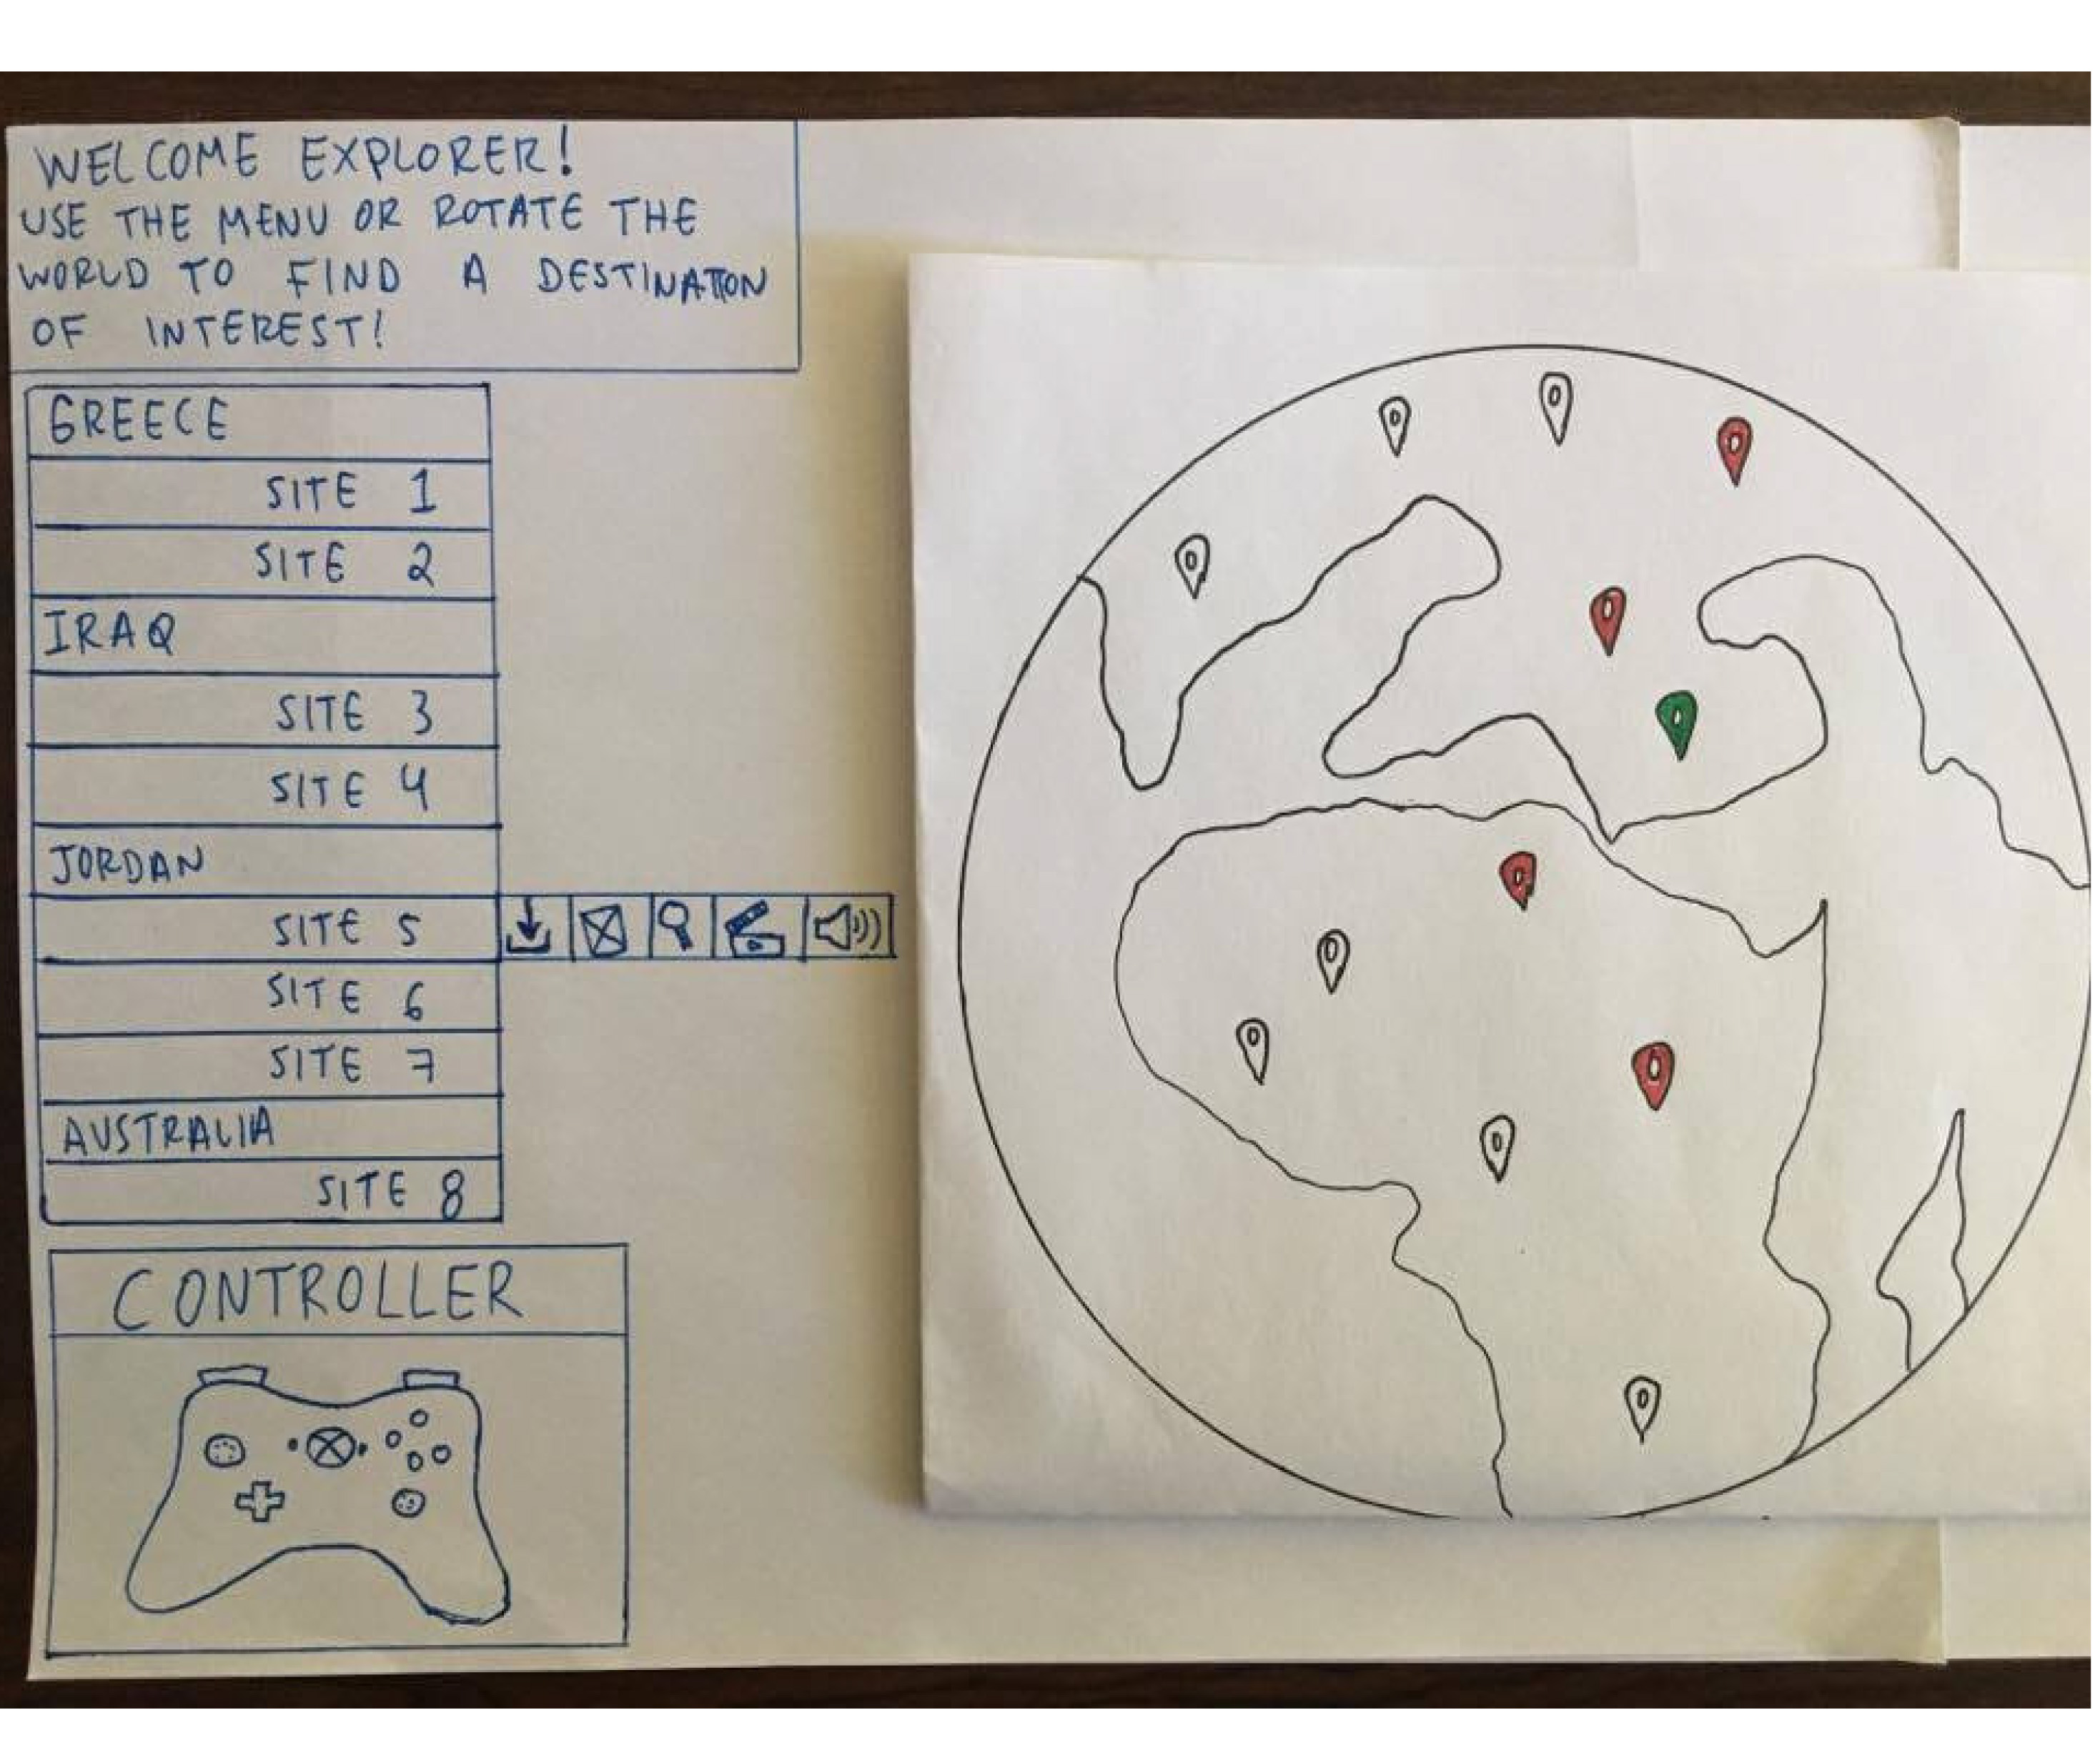 WELCOME EXPLORER!
USE THE MENU OR ROTATE THE
WORLD TO FIND A DESTINATION
OF INTEREST!
GREECE
SITE 1
SITE 2
IRAQ
SITE 3
SITE 4
JORDAN
SITE 5
SITE 6
SITE 7
AUSTRALIA
SITE 8
CONTROLLER